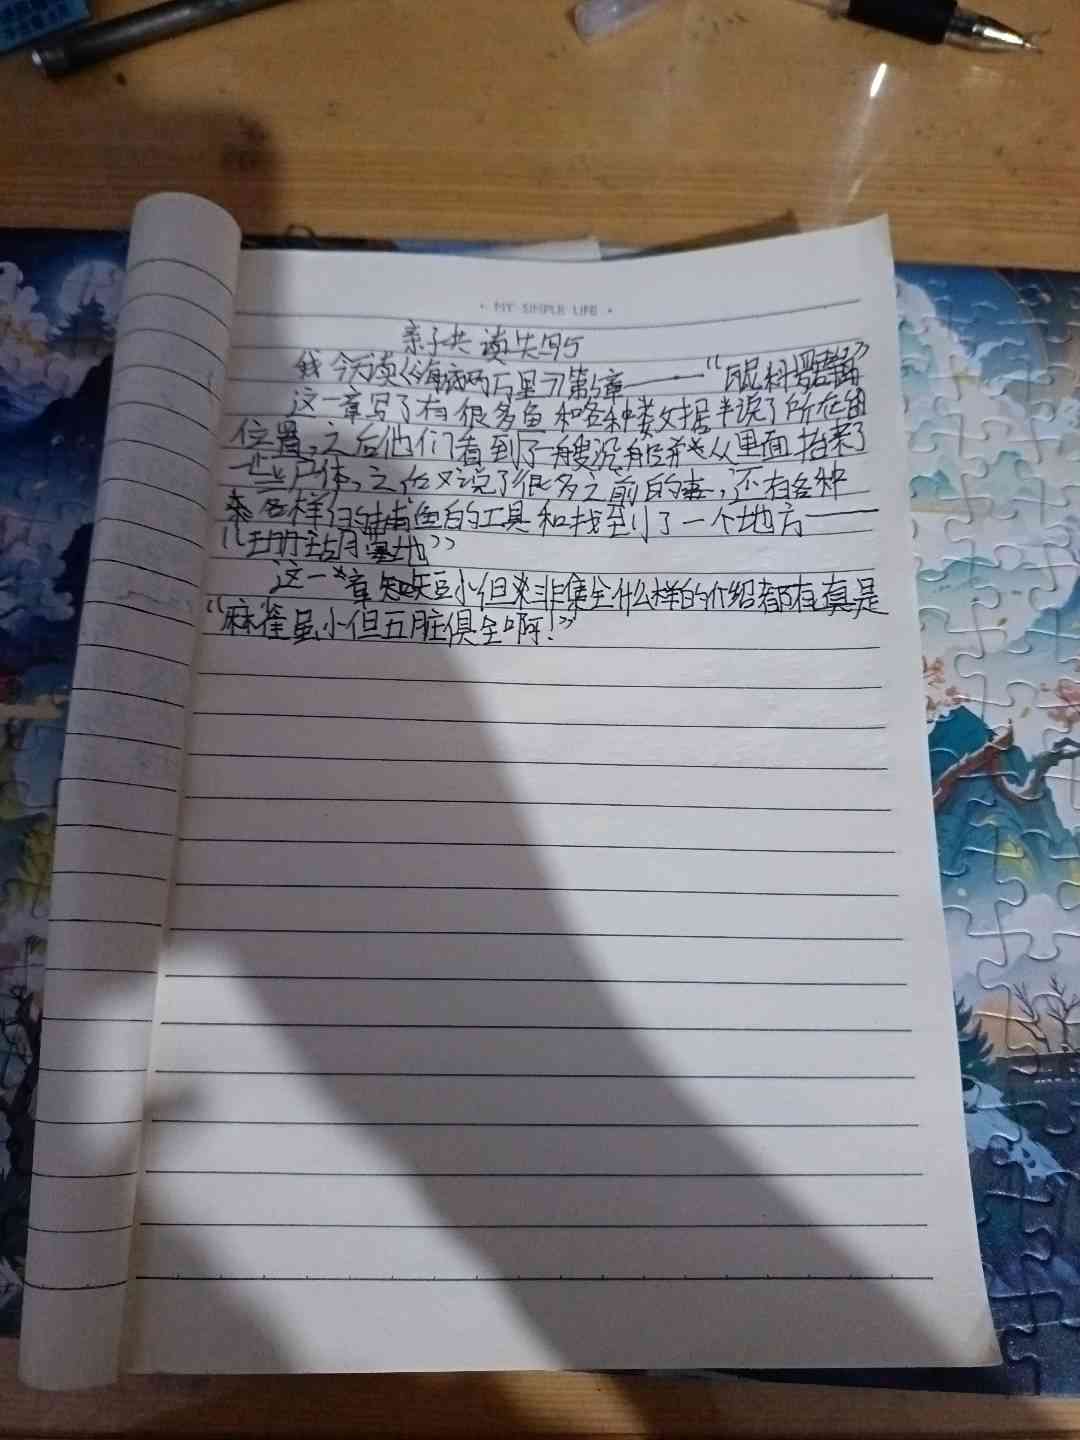 · MY SIMPLE LIFE ·
亲子共读
我今天读《海底两万里》第5章——“
这一章写了有很多鱼和各种数据并说了所在的
位置,之后他们看到了一艘沉船并从里面抬来了
一些尸体,之后又说了很多之前的事,还有各种
各样的捕鱼的工具和找到了一个地方——
“珊瑚墓地”
这一章短小但非集全什么样的介绍都有真是
“麻雀虽小但五脏俱全啊!”